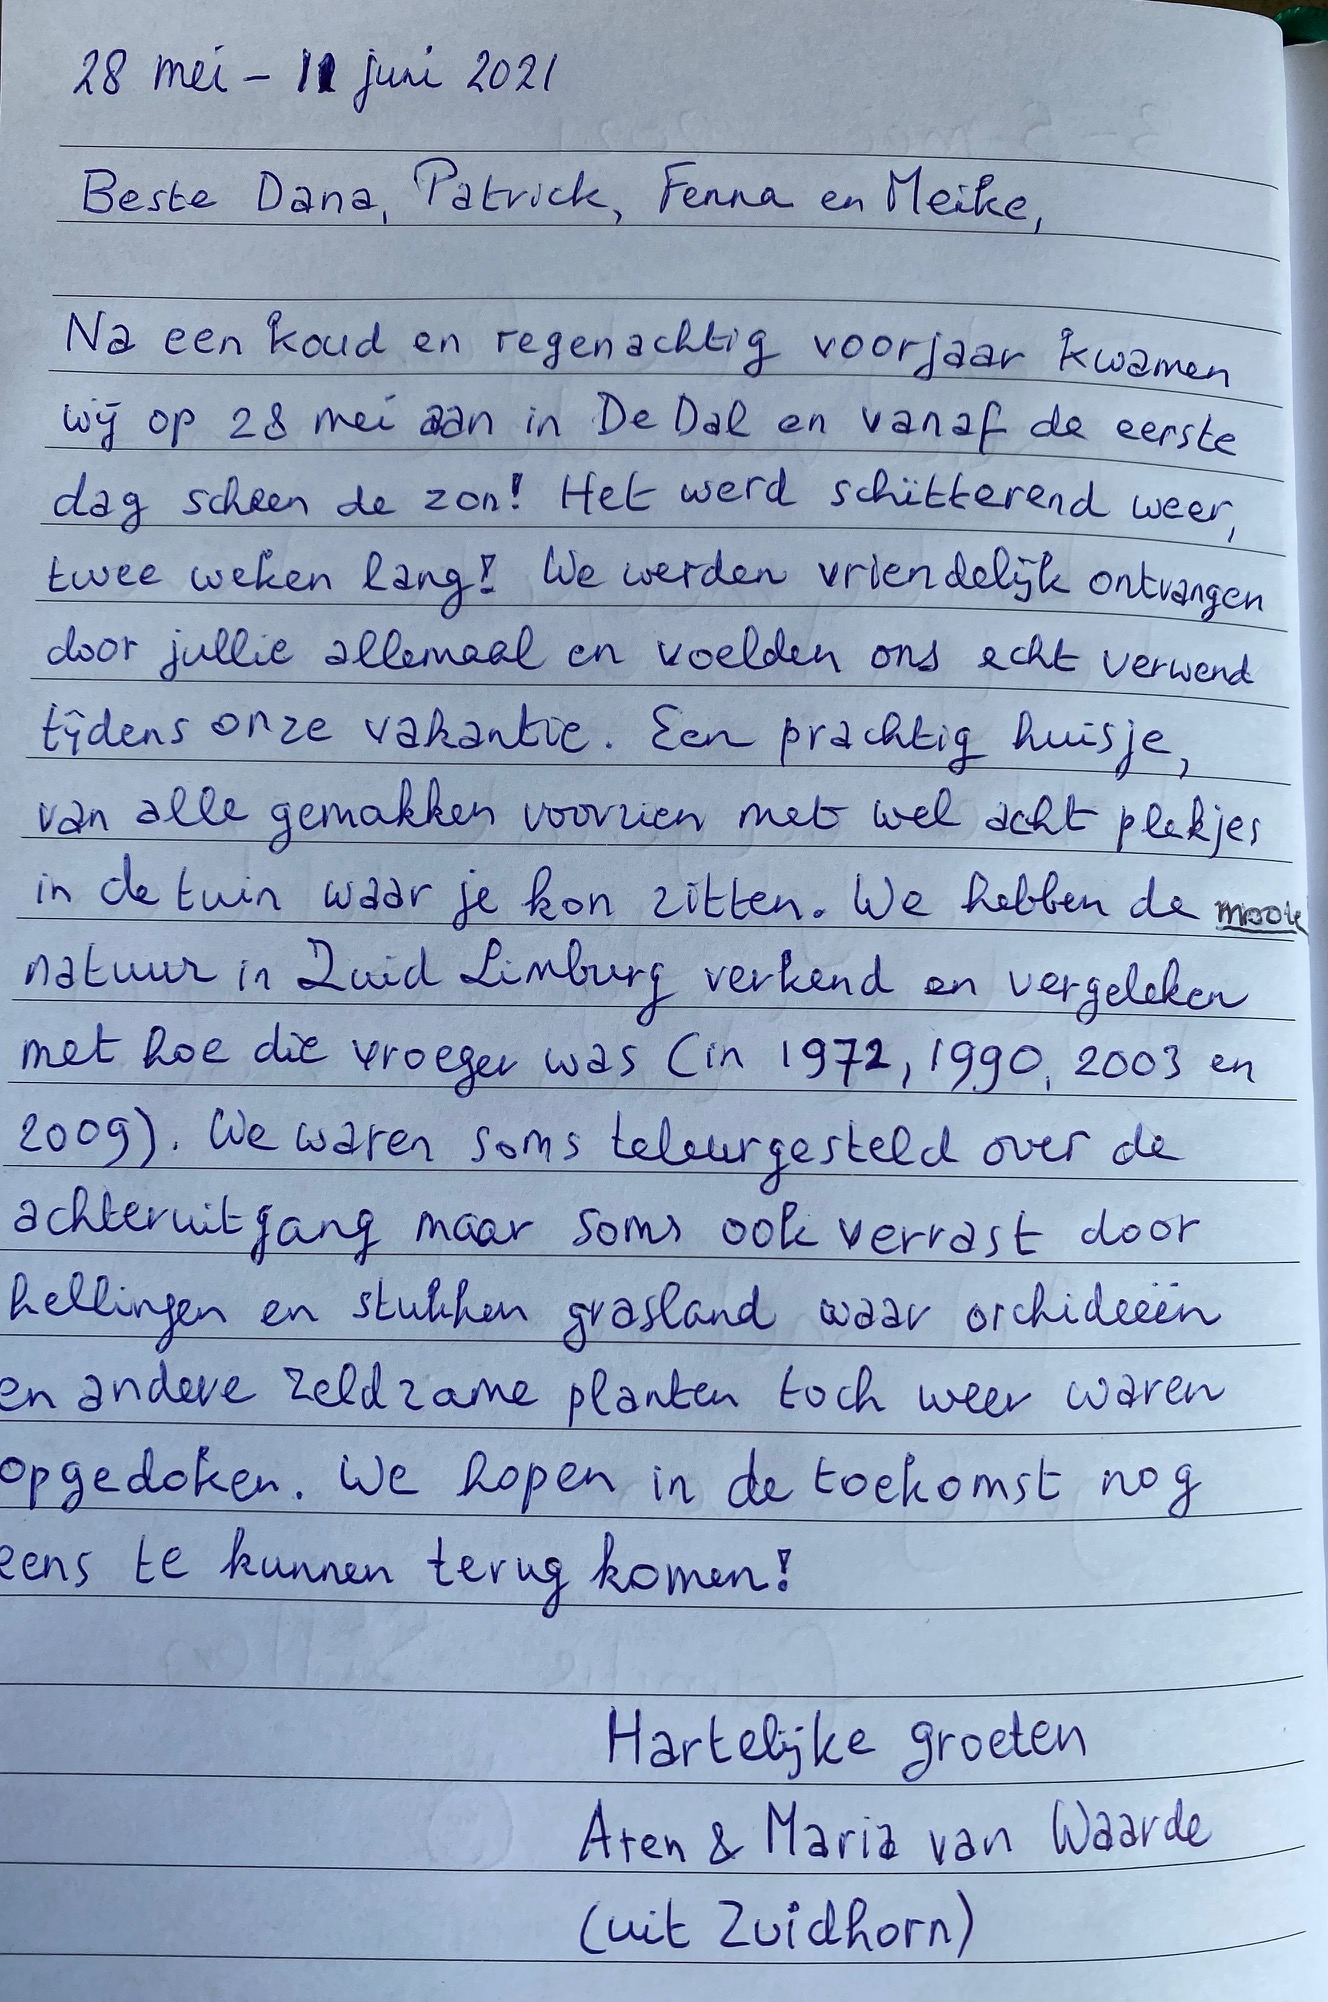 28 mei - 11 juni 2021
Beste Dana, Patrick, Fenna en Meike,
Na een koud en regenachtig voorjaar kwamen
wij op 28 mei aan in De Dal en vanaf de eerste
dag scheen de zon! Het werd schitterend weer,
twee weken lang! We werden vriendelijk ontvangen
door jullie allemaal en voelden ons echt verwend
tijdens onze vakantie. Een prachtig huisje,
van alle gemakken voorzien met wel acht plekjes
in de tuin waar je kon zitten. We hebben de mooie
natuur in Zuid Limburg verkend en vergeleken
met hoe die vroeger was (in 1972, 1990, 2003 en
2009). We waren soms teleurgesteld over de
achteruitgang maar soms ook verrast door
hellingen en stukken grasland waar orchideeën
en andere zeldzame planten toch weer waren
opgedoken. We hopen in de toekomst nog
eens te kunnen terug komen!
Hartelijke groeten
Aren & Maria van Waarde
(uit Zuidhorn)